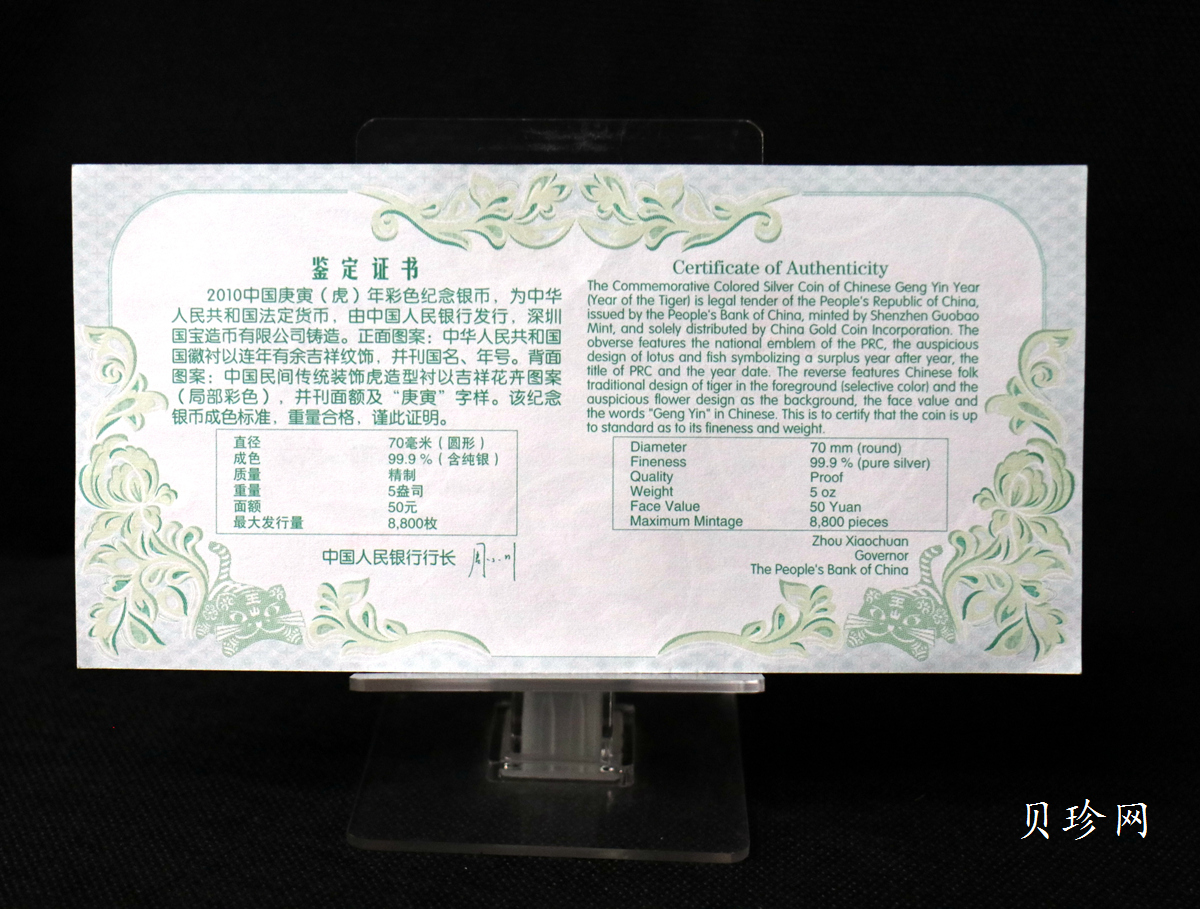 鉴定证书
2010中国庚寅（虎）年彩色纪念银币，为中华
人民共和国法定货币，由中国人民银行发行，深圳
国宝造币有限公司铸造。正面图案：中华人民共和国
国徽衬以连年有余吉祥纹饰，并刊国名、年号。背面
图案：中国民间传统装饰虎造型衬以吉祥花卉图案
（局部彩色），并刊面额及“庚寅”字样。该纪念
银币成色标准，重量合格，谨此证明。
直径 70毫米（圆形）
成色 99.9％（含纯银）
质量 精制
重量 5盎司
面额 50元
最大发行量 8,800枚
中国人民银行行长
Certificate of Authenticity
The Commemorative Colored Silver Coin of Chinese Geng Yin Year
(Year of the Tiger) is legal tender of the People's Republic of China,
issued by the People's Bank of China, minted by Shenzhen Guobao
Mint, and solely distributed by China Gold Coin Incorporation. The
obverse features the national emblem of the PRC, the auspicious
design of lotus and fish symbolizing a surplus year after year, the
title of PRC and the year date. The reverse features Chinese folk
traditional design of tiger in the foreground (selective color) and the
auspicious flower design as the background, the face value and
the words "Geng Yin" in Chinese. This is to certify that the coin is up
to standard as to its fineness and weight.
Diameter 70 mm (round)
Fineness 99.9 % (pure silver)
Quality Proof
Weight 5 oz
Face Value 50 Yuan
Maximum Mintage 8,800 pieces
Zhou Xiaochuan
Governor
The People's Bank of China
贝珍网